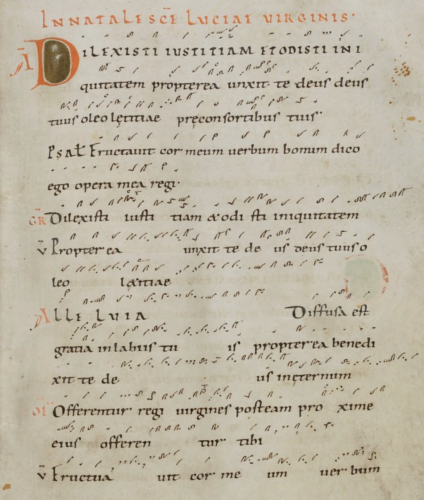 IN NATALE SCĒ LUCIAE VIRGINIS·
Ā DILEXISTI IUSTITIAM ET ODISTI INI
quitatem propterea unxit te deus deus
tuus oleo lętitiae pręconsortibus tuis·
Psał Eructavit cor meum verbum bonum dico
ego opera mea regi·
GR Dilexisti iusti tiam & odi sti iniquitatem
V Propter ea unxit te de us deus tuus o
leo lętitiae
ALLELUIA Diffusa est
gratia in labiis tu is propterea benedi
xit te de us in ęternum
OF Offerentur regi virgines postea m pro xime
eius offeren tur tibi
V Eructua uit cor me um ver bum